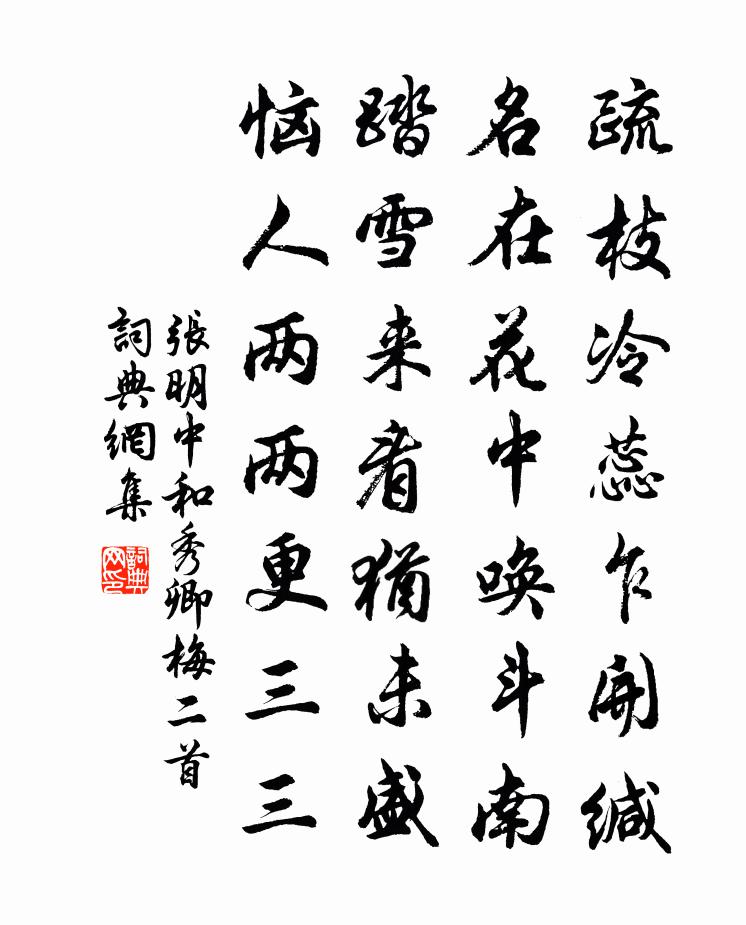 疏枝冷蕊乍開緘
名在花中唤斗南
踏雪来看猶未盛
恼人两两更三三
張明中和秀卿梅二首
詞典網集
詞典網印